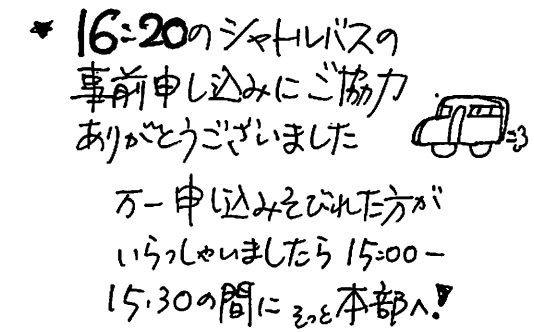 * 16:20のシャトルバスの
事前申し込みにご協力
ありがとうございました
万一申し込みそびれた方が
いらっしゃいましたら 15:00ー
15:30の間に そっと本部へ!